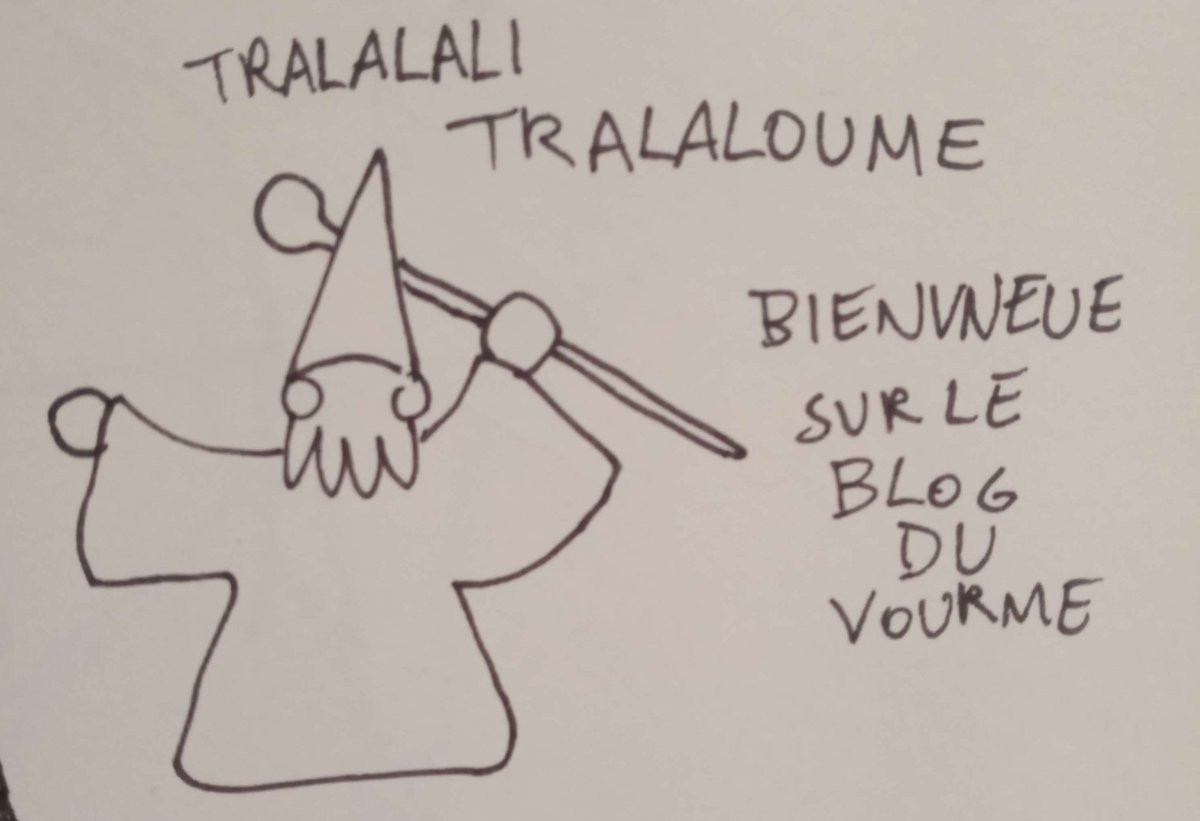 TRALALALI
TRALALOUME
BIENVNEUE
SUR LE
BLOG
DU
VOURME